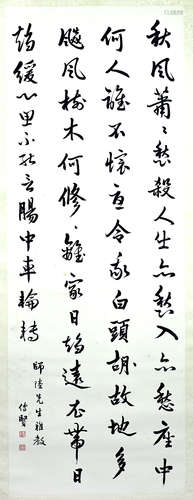 秋風蕭〻愁殺人出亦愁入亦愁座中
何人誰不懷憂令我白頭胡故地多
飈風樹木何修〻離家日趨遠衣帶日
趨緩心思不能言腸中車輪轉
先生雅教
傳賢